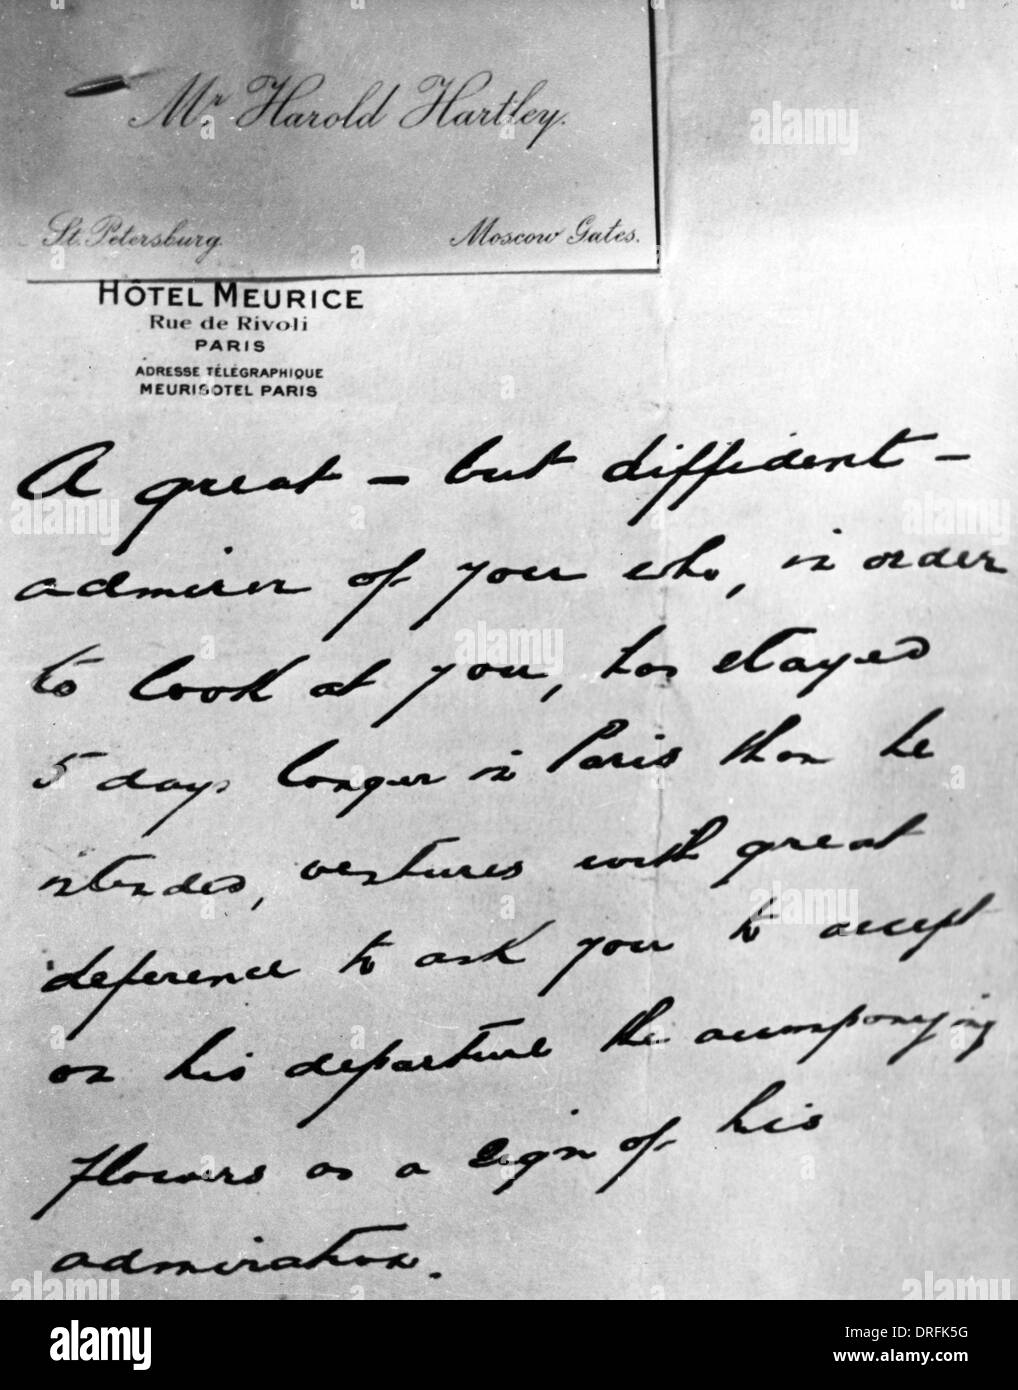 Mr. Harold Hartley.
St. Petersburg.
Moscow Gates.
HÔTEL MEURICE
Rue de Rivoli
PARIS
ADRESSE TÉLÉGRAPHIQUE
MEURISOTEL PARIS
A great – but diffident –
admirer of you who, in order
to look at you, has stayed
5 days longer in Paris than he
intended, ventures with great
deference to ask you to accept
on his departure the accompanying
flowers as a sign of his
admiration.
alamy
Image ID: DRFK5G
www.alamy.com